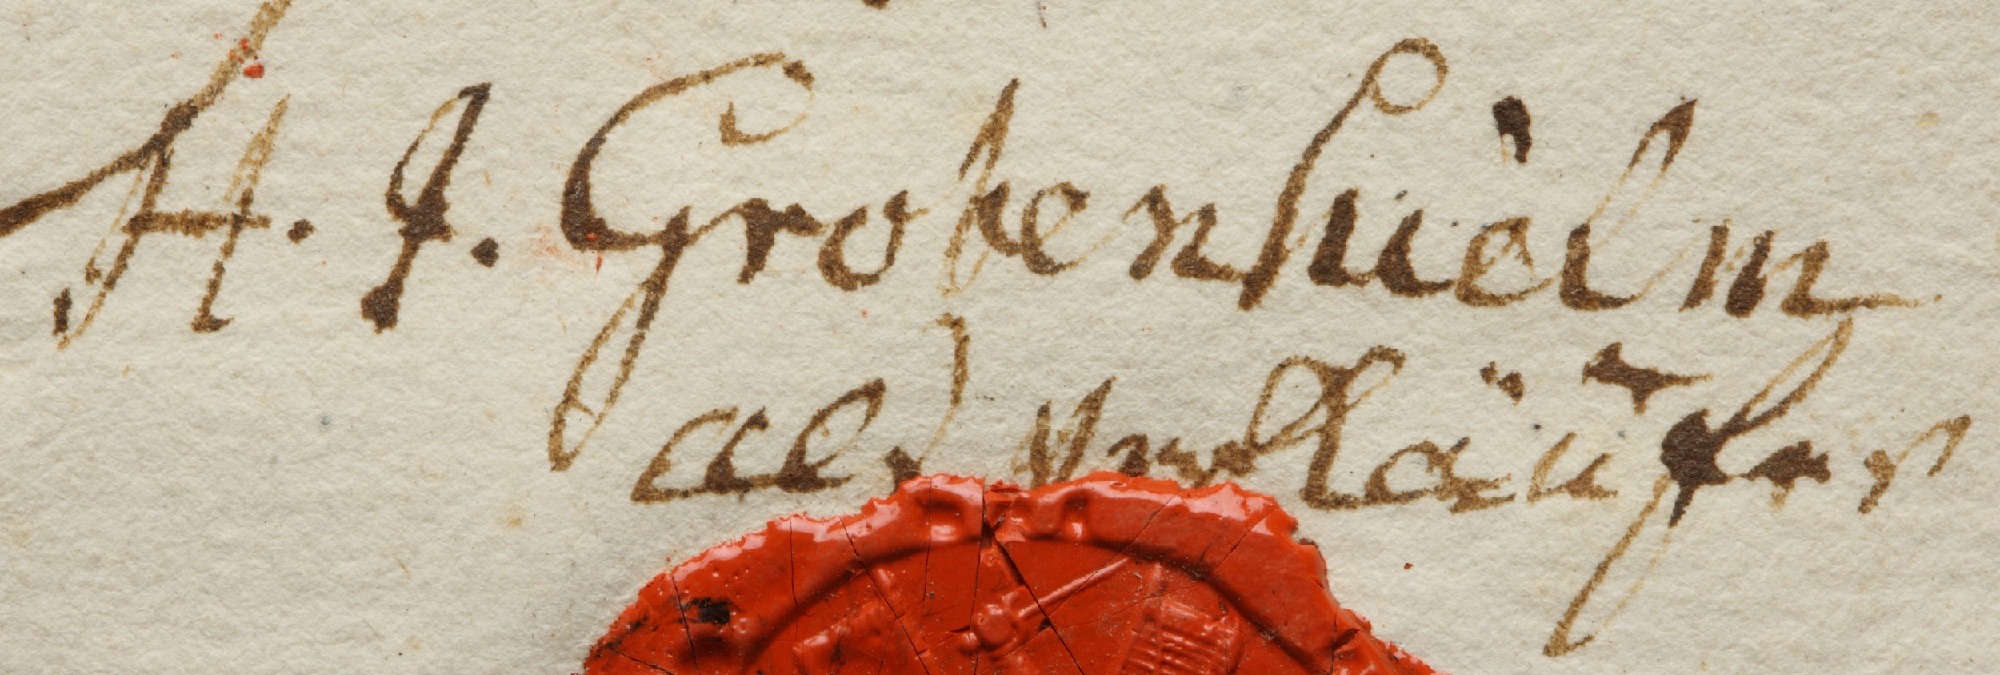 H. J. Grotenhiëlm
als Verkäufer